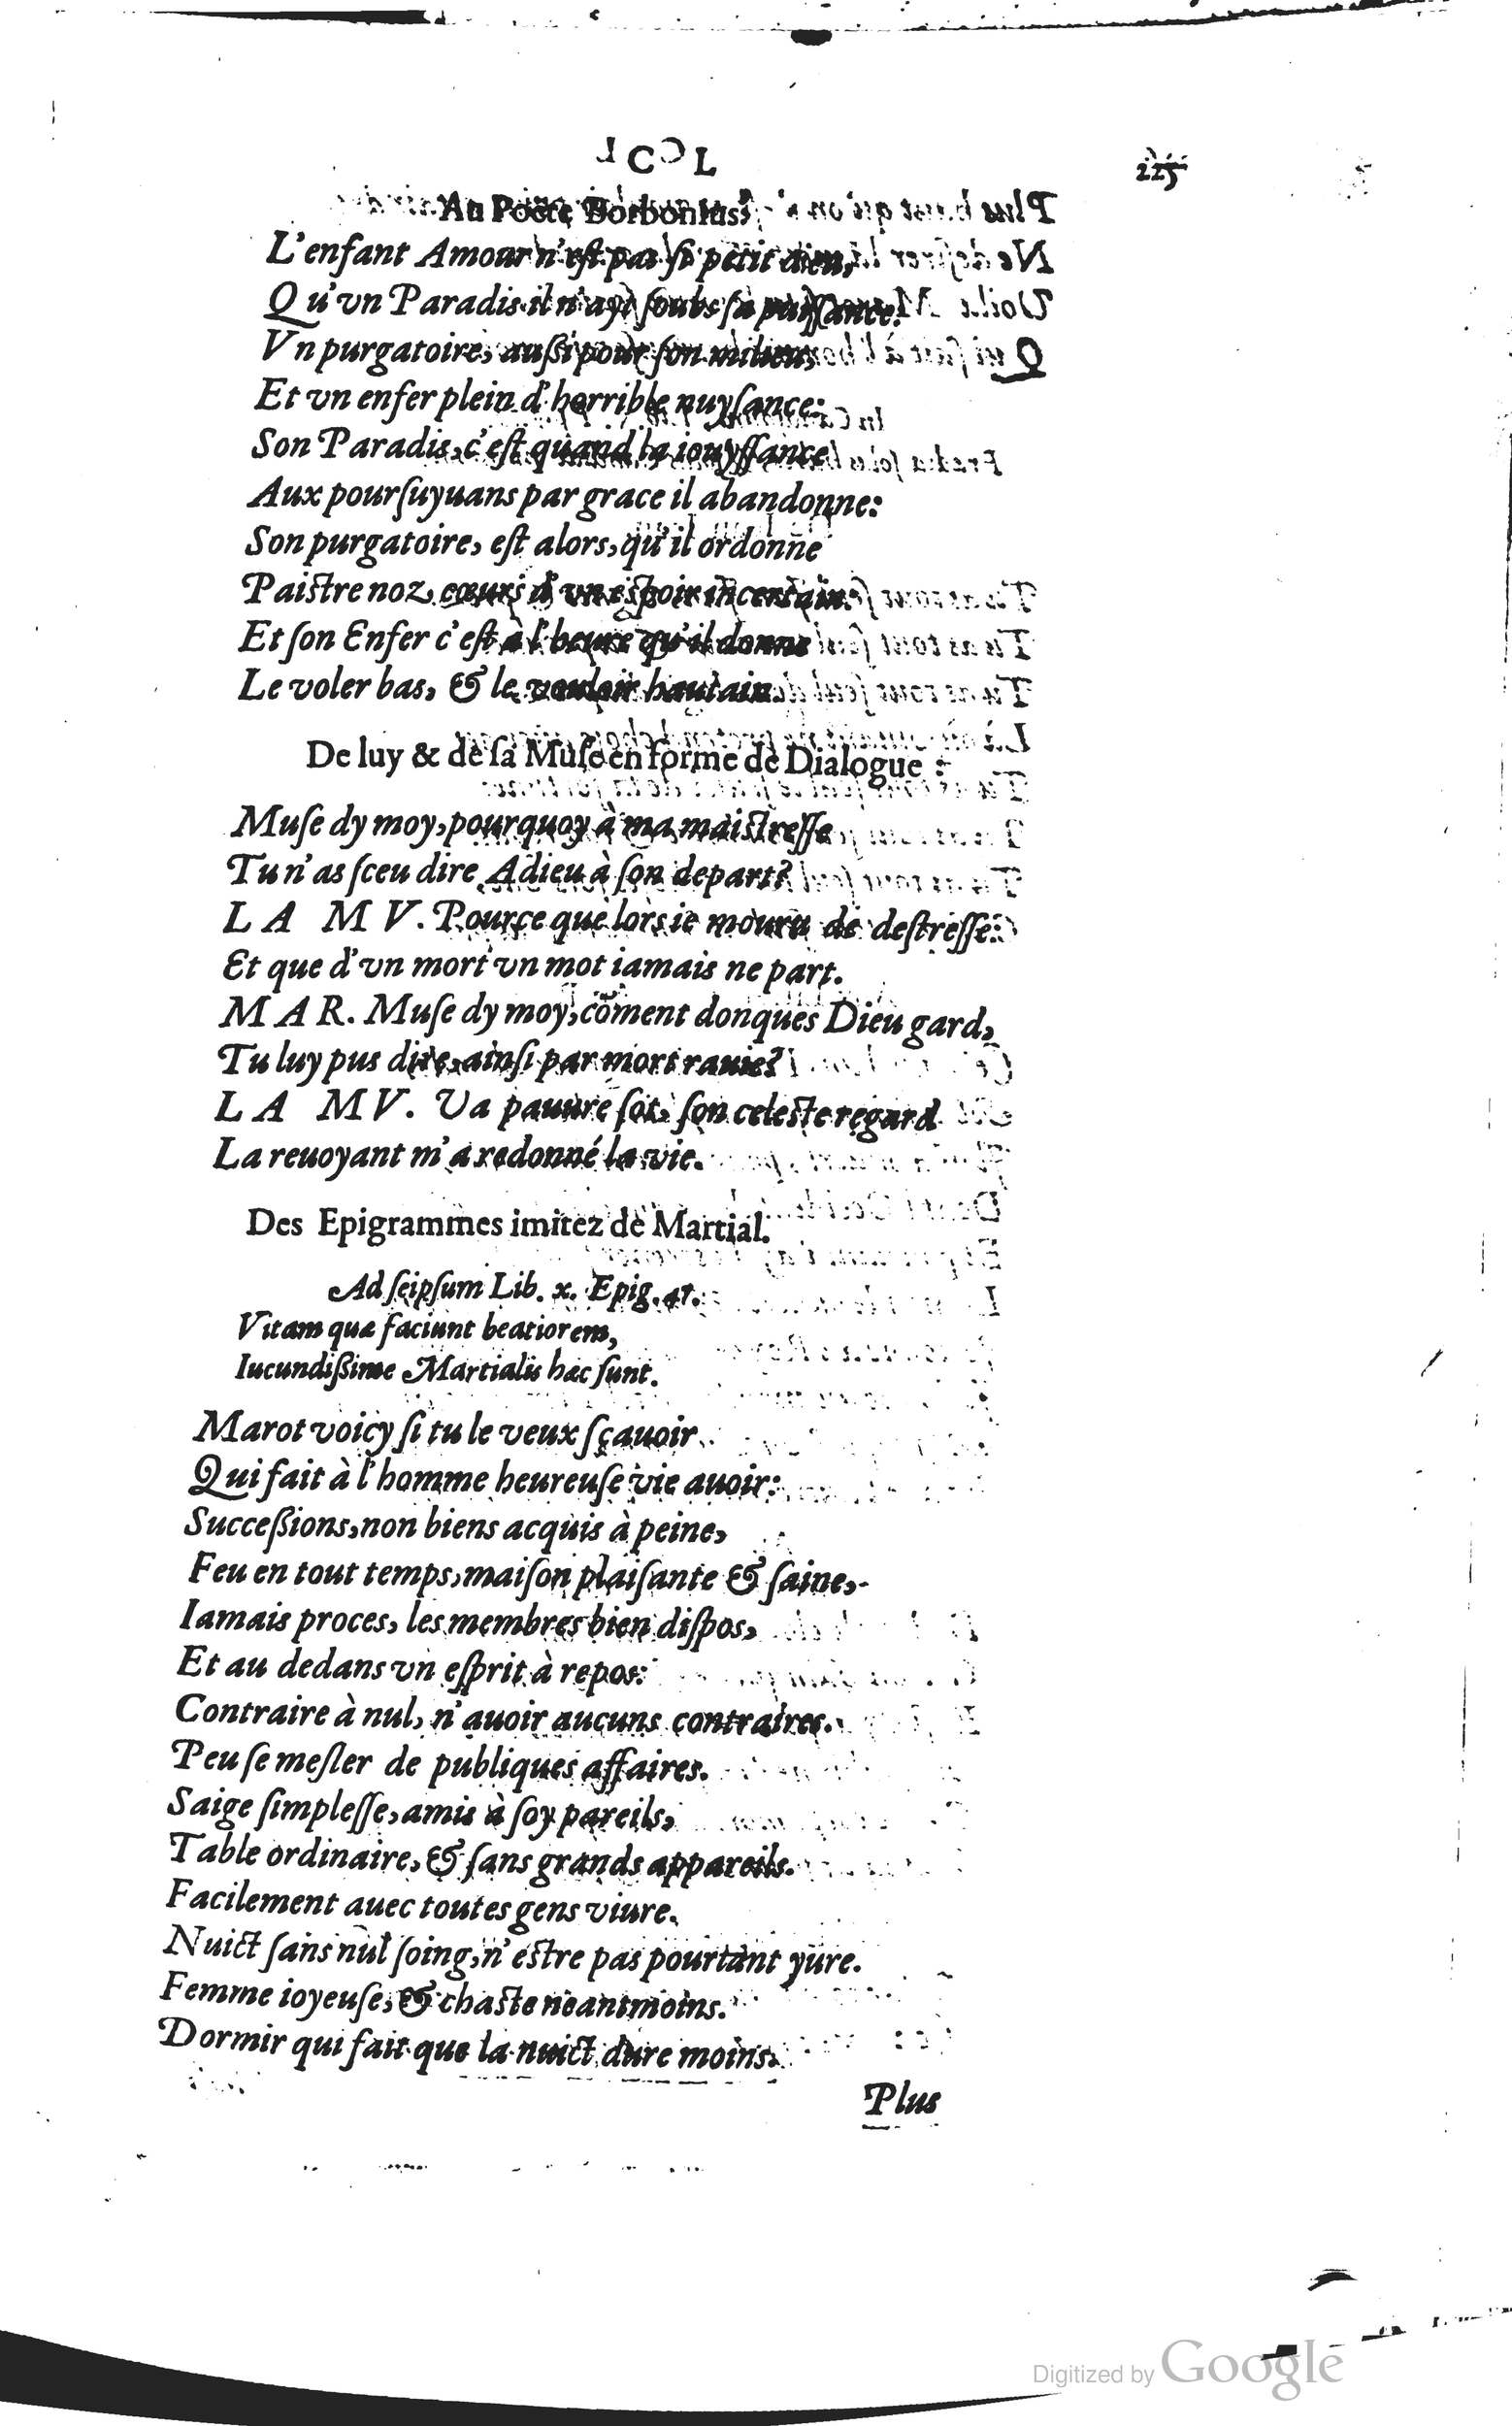 CCL
225
Au Poëte Borbonius.
L'enfant Amour n'est pas si petit dieu,
Qu'vn Paradis il n'ayt soubs sa puissance.
Vn purgatoire, aussi pour son milieu,
Et vn enfer plein d'horrible nuysance:
Son Paradis, c'est quand la iouyssance
Aux poursuyuans par grace il abandonne:
Son purgatoire, est alors, qu'il ordonne
Paistre noz cœurs d'vn espoir incertain:
Et son Enfer c'est à l'heure qu'il donne
Le voler bas, & le vouloir hautain.
De luy & de sa Muse en forme de Dialogue.
Muse dy moy, pourquoy à ma maistresse
Tu n'as sceu dire Adieu à son depart?
LA MV. Pource que lors ie mouru de destresse:
Et que d'vn mort vn mot iamais ne part.
MAR. Muse dy moy, cõment donques Dieu gard,
Tu luy pus dire, ainsi par mort rauie?
LA MV. Va pauure sot, son celeste regard
La reuoyant m'a redonné la vie.
Des Epigrammes imitez de Martial.
Ad seipsum Lib. x. Epig. 47.
Vitam quæ faciunt beatiorem,
Iucundissime Martialis hæc sunt.
Marot voicy si tu le veux sçauoir
Qui fait à l'homme heureuse vie auoir:
Successions, non biens acquis à peine,
Feu en tout temps, maison plaisante & saine,
Iamais proces, les membres bien dispos,
Et au dedans vn esprit à repos:
Contraire à nul, n'auoir aucuns contraires.
Peu se mesler de publiques affaires.
Saige simplesse, amis à soy pareils,
Table ordinaire, & sans grands appareils.
Facilement auec toutes gens viure.
Nuict sans nul soing, n'estre pas pourtant yure.
Femme ioyeuse, & chaste neantmoins.
Dormir qui fait que la nuict dure moins.
Plus
Digitized by Google